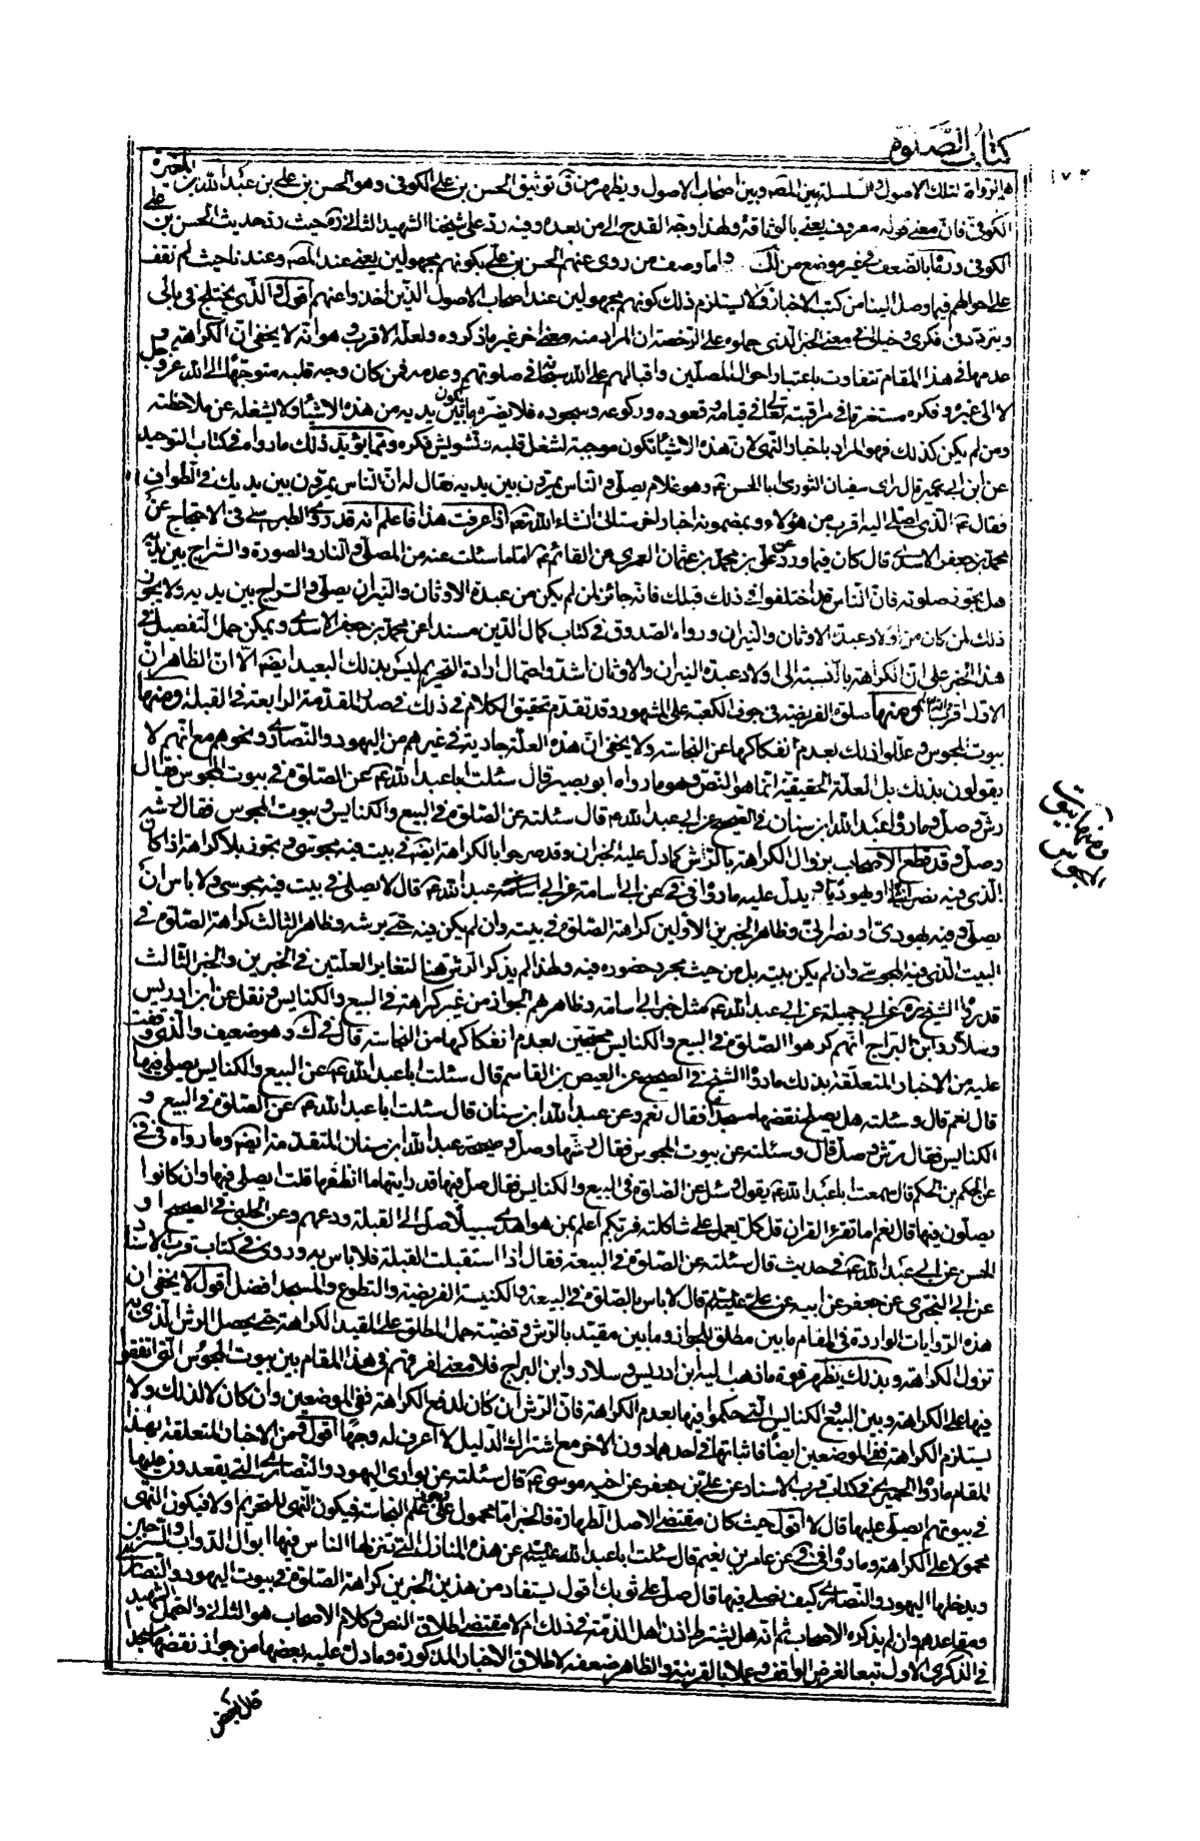 كتاب الصلوة
١٧٢
هم الرواة لتلك الاصول والسلسلة بين المصه وبين اصحاب الاصول ويظهر من ق توثيق الحسن بن علي الكوفي وهو الحسن بن علي بن عبد الله بن المغيرة
الكوفي فان معنى قوله معروف يعني بالوثاقة ولهذا وجه القدح الى من بعده وفيه رد على شيخنا الشهيد الثاني ره حيث رد حديث الحسن بن علي
الكوفي ورماه بالضعف في غير موضع من لك واما وصف من روى عنهم الحسن بن علي بكونهم مجهولين يعني عند المصه وعندنا حيث لم نقف
على احوالهم فيما وصل الينا من كتب الاخبار ولا يستلزم ذلك كونهم مجهولين عند اصحاب الاصول الذين اخذوا عنهم اقول والذي يختلج في بالي
ويتردد في فكري وخيالي في معنى الخبر الذي حملوه على الرخصة ان المراد منه معنى اخر غير ما ذكروه ولعله الاقرب وهو انه لا يخفى ان الكراهة و
عدمها في هذا المقام تتفاوت باعتبار احوال المصلين واقبالهم على الله سبحانه في صلوتهم وعدمه فمن كان وجه قلبه متوجها الى الله عز وجل
لا الى غيره وفكره مستغرقا في مراقبته تعالى في قيامه وقعوده وركوعه وسجوده فلا يضره ما يكون بين يديه من هذه الاشياء ولا يشغله عن ملاحظته
ومن لم يكن كذلك فهو المراد باخبار النهي لان هذه الاشياء تكون موجبة لشغل قلبه وتشويش فكره ومما يؤيد ذلك ما رواه في كتاب التوحيد
عن ابن ابي عمير قال راى سفيان الثوري ابا الحسن ع وهو غلام يصلي والناس يمرون بين يديه فقال له ان الناس يمرون بين يديك في الطواف
فقال ع الذي اصلي اليه اقرب من هؤلاء وبمضمونه اخبار اخر ستاتي انشاء الله تعالى اذا عرفت هذا فاعلم انه قد روى الطبرسي في الاحتجاج عن
محمد بن جعفر الاسدي قال كان فيما ورد عن علي بن محمد بن عثمان العمري عن القائم ع اما ما سئلت عنه من المصلي والنار والصورة والسراج بين يديه
هل يجوز صلوته فان الناس قد اختلفوا في ذلك قبلك فانه جائز لمن لم يكن من عبدة الاوثان والنيران يصلي والسراج بين يديه ولا يجوز
ذلك لمن كان من اولاد عبدة الاوثان والنيران ورواه الصدوق في كتاب كمال الدين مسندا عن محمد بن جعفر الاسدي ويمكن حمل التفصيل في
هذا الخبر على ان الكراهة بالنسبة الى اولاد عبدة النيران والاوثان اشد واحتمال ارادة التحريم ليس بذلك البعيد ايضا الا ان الظاهر ان
الاول اقرب ومنها صلوة الفريضة في جوف الكعبة على المشهور وقد تقدم تحقيق الكلام في ذلك في صدر المقدمة الرابعة في القبلة ومنها
بيوت المجوس وعللوا ذلك بعدم انفكاكها عن النجاسة ولا يخفى ان هذه العلة جارية في غيرهم من اليهود والنصارى ونحوهم مع انهم لا
يقولون بذلك بل العلة الحقيقية انما هو النص وهو ما رواه ابو بصير قال سئلت ابا عبد الله ع عن الصلوة في بيوت المجوس فقال
رش وصل وما رواه عبد الله ابن سنان في الصحيح عن ابي عبد الله ع قال سئلته عن الصلوة في البيع والكنايس وبيوت المجوس فقال رش
وصل وقد قطع الاصحاب بزوال الكراهة بالرش كما دل عليه الخبران وقد صرحوا بالكراهة ايضا في بيت فيه مجوسي ويجوز بلا كراهة اذا كان
الذي فيه نصرانيا او يهوديا ويدل عليه ما رواه في في عن ابي اسامة عن ابي عبد الله ع قال لا يصلى في بيت فيه مجوسي ولا باس ان
يصلى وفيه يهودي او نصراني وظاهر الخبرين الأولين كراهة الصلوة في بيته وان لم يكن فيه حتى يرشه وظاهر الثالث كراهة الصلوة في
البيت الذي فيه المجوسي وان لم يكن بيته بل من حيث مجرد حضوره فيه ولهذا لم يذكر الرش هنا لتغاير العلتين في الخبرين والخبر الثالث
قد رواه الشيخ ره عن ابي جميلة عن ابي عبد الله ع مثل خبر ابي اسامة وظاهرهم الجواز من غير كراهة في البيع والكنايس ونقل عن ابن ادريس
وسلار وابن البراج انهم كرهوا الصلوة في البيع والكنايس محتجين بعدم انفكاكها من النجاسة قال في ك وهو ضعيف والذي وقفت
عليه من الاخبار المتعلقة بذلك ما رواه الشيخ في الصحيح عن العيص بن القاسم قال سئلت ابا عبد الله ع عن البيع والكنايس يصلى فيها
قال نعم قال وسئلته هل يصلح نقضها مسجدا فقال نعم وعن عبد الله ابن سنان قال سئلت ابا عبد الله ع عن الصلوة في البيع و
الكنايس فقال رش وصل قال وسئلته عن بيوت المجوس فقال رشها وصل وصحيحة عبد الله ابن سنان المتقدمة ايضا وما رواه في في
عن الحكم بن الحكم قال سمعت ابا عبد الله ع يقول وسئل عن الصلوة في البيع والكنايس فقال صل فيها قد رايتها ما انظفها قلت ايصلى فيها وان كانوا
يصلون فيها قال نعم اما تقرء القران قل كل يعمل على شاكلته فربكم اعلم بمن هو اهدى سبيلا صل الى القبلة ودعهم وعن الحلبي في الصحيح او
الحسن عن ابي عبد الله ع في حديث قال سئلته عن الصلوة في البيعة فقال اذا استقبلت القبلة فلا باس به وروى في كتاب قرب الاسناد
عن ابي البختري عن جعفر عن ابيه عن علي عليهم قال لا باس بالصلوة في البيعة والكنيسة الفريضة والتطوع والمسجد افضل اقول لا يخفى ان
هذه الروايات الواردة في المقام ما بين مطلق للجواز وما بين مقيد بالرش وقضية حمل المطلق على المقيد الكراهة حتى يحصل الرش الذي به
تزول الكراهة وبذلك يظهر قوة ما ذهب اليه ابن ادريس وسلار وابن البراج فلا معنى لفرقهم في هذا المقام بين بيوت المجوس التي اتفقوا
فيها على الكراهة وبين البيع والكنايس التي حكموا فيها بعدم الكراهة فان الرش ان كان لدفع الكراهة ففي الموضعين وان كان لا لذلك ولا
يستلزم الكراهة ففي الموضعين ايضا فاثباتها في احدهما دون الاخر مع اشتراك الدليل لا اعرف له وجها اقول ومن الاخبار المتعلقة بهذا
المقام ما رواه الحميري في كتاب قرب الاسناد عن علي بن جعفر عن اخيه موسى ع قال سئلته عن بواري اليهود والنصارى التي يقعدون عليها
في بيوتهم ايصلى عليها قال لا اقول حيث كان مقتضى الاصل الطهارة فالخبر اما محمول على علم النجاسة فيكون النهي للتحريم اولا فيكون النهي
محمولا على الكراهة وما رواه في في عن عامر بن نعيم قال سئلت ابا عبد الله عليهم عن هذه المنازل التي تنزلها الناس فيها ابوال الدواب والسرجين
ويدخلها اليهود والنصارى كيف نصلي فيها قال صل على ثوبك اقول يستفاد من هذين الخبرين كراهة الصلوة في بيوت اليهود والنصارى
ومقاعدهم وان لم يذكره الاصحاب ثم انه هل يشترط اذن اهل الذمة في ذلك ام لا مقتضى اطلاق النص وكلام الاصحاب هو الثاني واحتمل الشهيد
في الذكرى الاول تبعا لغرض الواقف وعملا بالقرينة والظاهر ضعفه لاطلاق الاخبار المذكورة وما دل عليه بعضها من جواز نقضها مسجدا
ومنها بيوت
المجوس